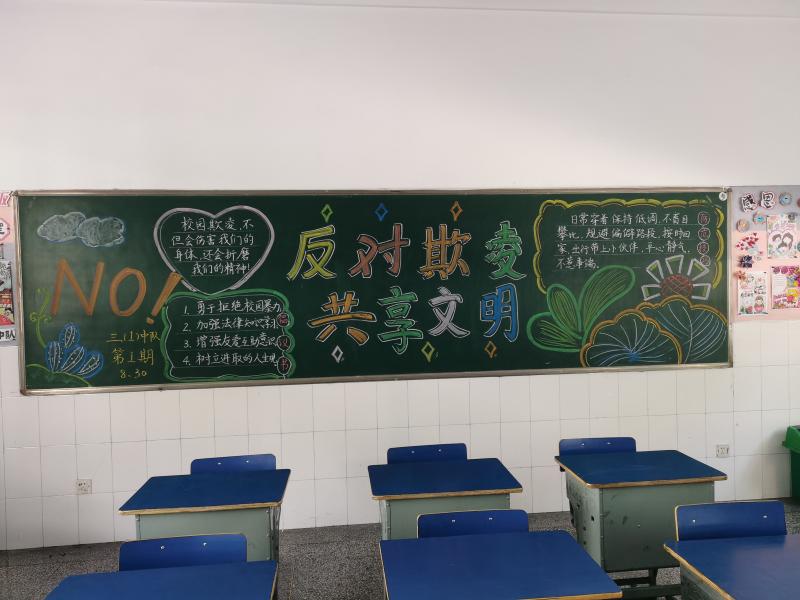 校园欺凌,不
但会伤害我们的
身体,还会折磨
我们的精神!
NO!
三(1)中队
第1期
8.30
1. 勇于拒绝校园暴力
2. 加强法律知识学习
3. 增强友爱互助意识
4. 树立进取的人生观
倡议书
反对欺凌
共享文明
日常穿着保持低调,不盲目
攀比,规避偏僻路段,按时回
家,出行带上小伙伴,平心静气,
不惹事端。